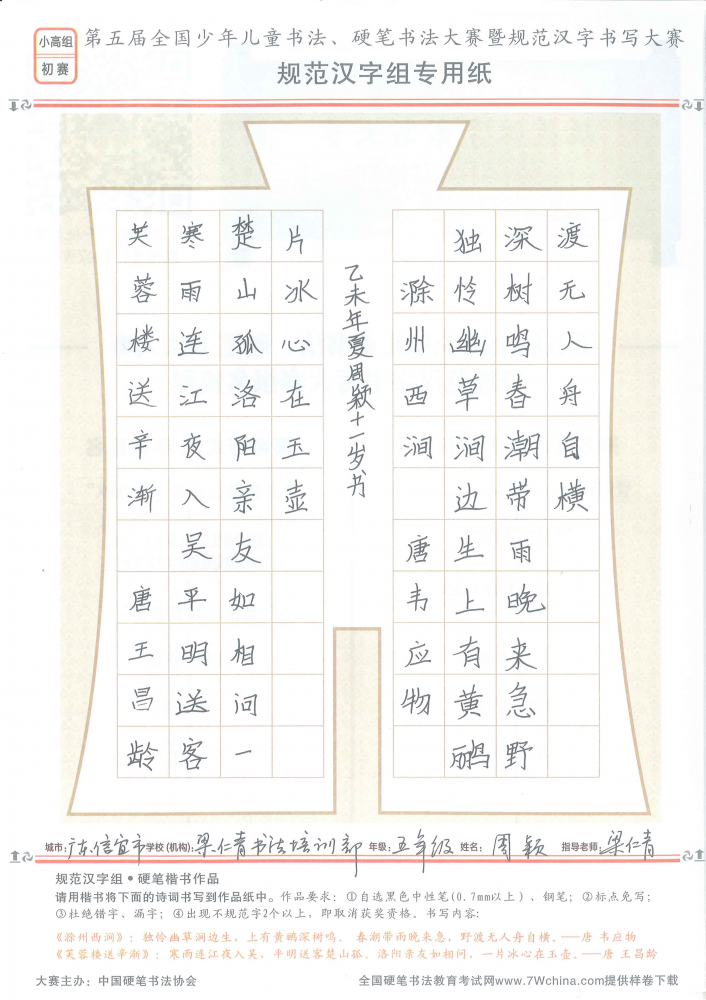 小高组
初赛
第五届全国少年儿童书法、硬笔书法大赛暨规范汉字书写大赛
规范汉字组专用纸
芙蓉楼送辛渐 唐王昌龄
寒雨连江夜入吴平明送客
楚山孤洛阳亲友如相问一
片冰心在玉壶
乙未年夏周颖十一岁书
滁州西涧 唐韦应物
独怜幽草涧边生上有黄鹂
深树鸣春潮带雨晚来急野
渡无人舟自横
城市:广东信宜市学校(机构):梁仁青书法培训部 年级:五年级 姓名:周颖 指导老师:梁仁青
规范汉字组●硬笔楷书作品
请用楷书将下面的诗词书写到作品纸中。作品要求：①自选黑色中性笔(0.7mm以上)、钢笔；②标点免写；
③杜绝错字、漏字；④出现不规范字2个以上，即取消获奖资格。书写内容：
《滁州西涧》：独怜幽草涧边生，上有黄鹂深树鸣。 春潮带雨晚来急，野渡无人舟自横。——唐 韦应物
《芙蓉楼送辛渐》：寒雨连江夜入吴，平明送客楚山孤。洛阳亲友如相问，一片冰心在玉壶。——唐 王昌龄
大赛主办：中国硬笔书法协会
全国硬笔书法教育考试网www.7Wchina.com提供样卷下载